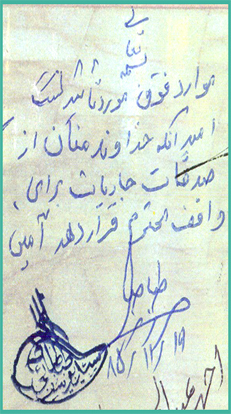 بسمه تعالی
موارد فوق مورد تأئید است
امید آنکه خداوند منان از
صدقات جاریات برای
واقف محترم قرار دهد آمین
۸۵/۱۲/۱۹